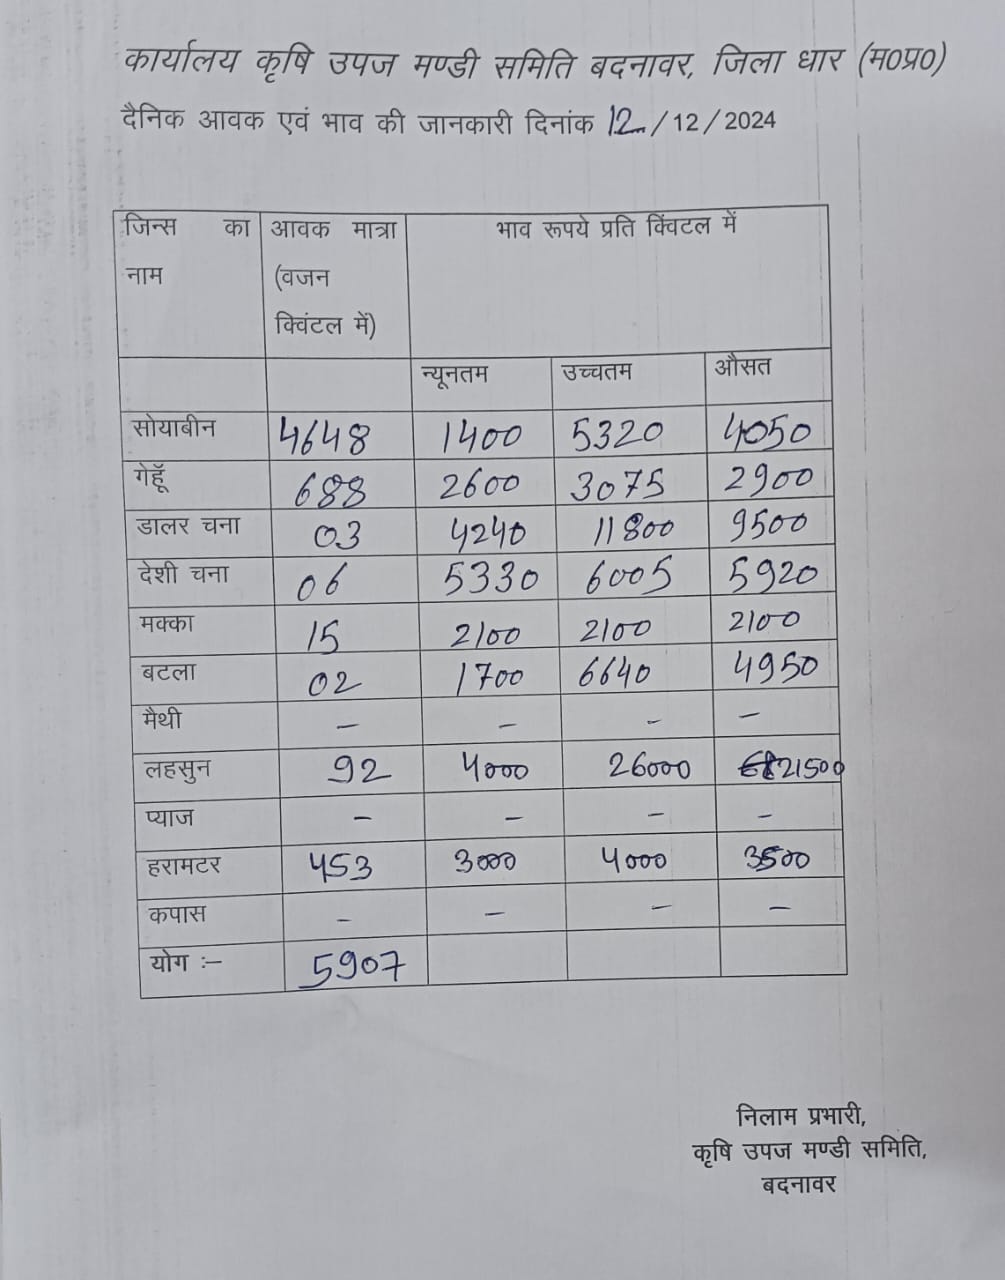 कार्यालय कृषि उपज मण्डी समिति बदनावर, जिला धार (म0प्र0)
दैनिक आवक एवं भाव की जानकारी दिनांक 12/12/2024
जिन्स का नाम आवक मात्रा (वजन क्विंटल में) भाव रूपये प्रति क्विंटल में
न्यूनतम उच्चतम औसत
सोयाबीन 4648 1400 5320 4050
गेहूँ 688 2600 3075 2900
डालर चना 03 4240 11800 9500
देशी चना 06 5330 6005 5920
मक्का 15 2100 2100 2100
बटला 02 1700 6640 4950
मैथी - - - -
लहसुन 92 4000 26000 21500
प्याज - - - -
हरामटर 453 3000 4000 3500
कपास - - - -
योग :- 5907
निलाम प्रभारी,
कृषि उपज मण्डी समिति,
बदनावर